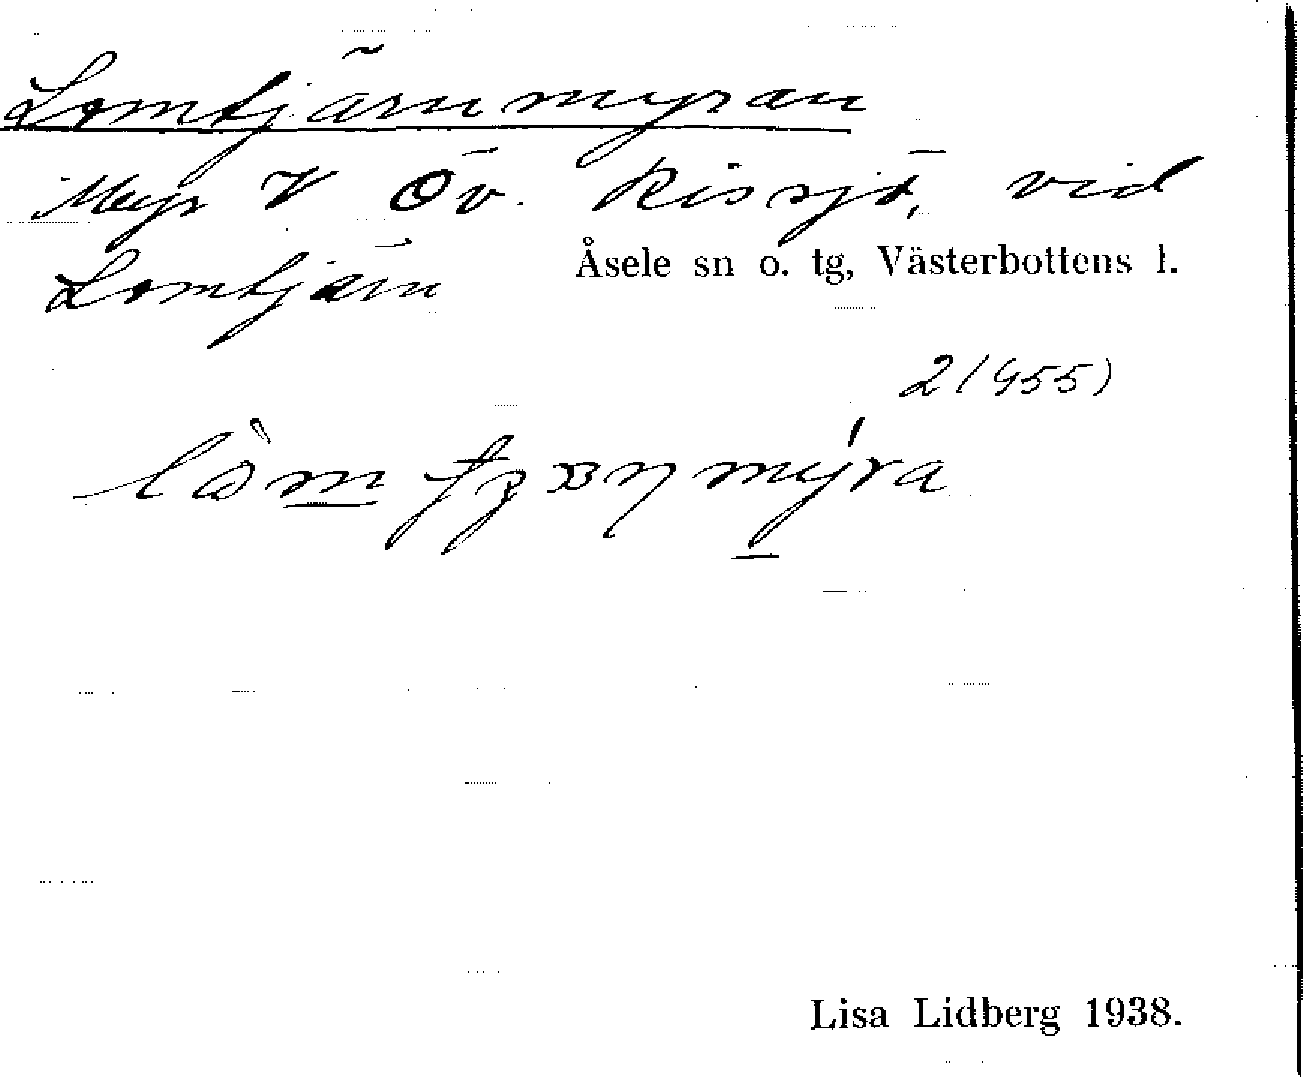 Lomtjärnmyran
Myr V Öv. Rissjö, vid
Lomtjärn
Åsele sn o. tg, Västerbottens l.
2 (955)
Lisa Lidberg 1938.